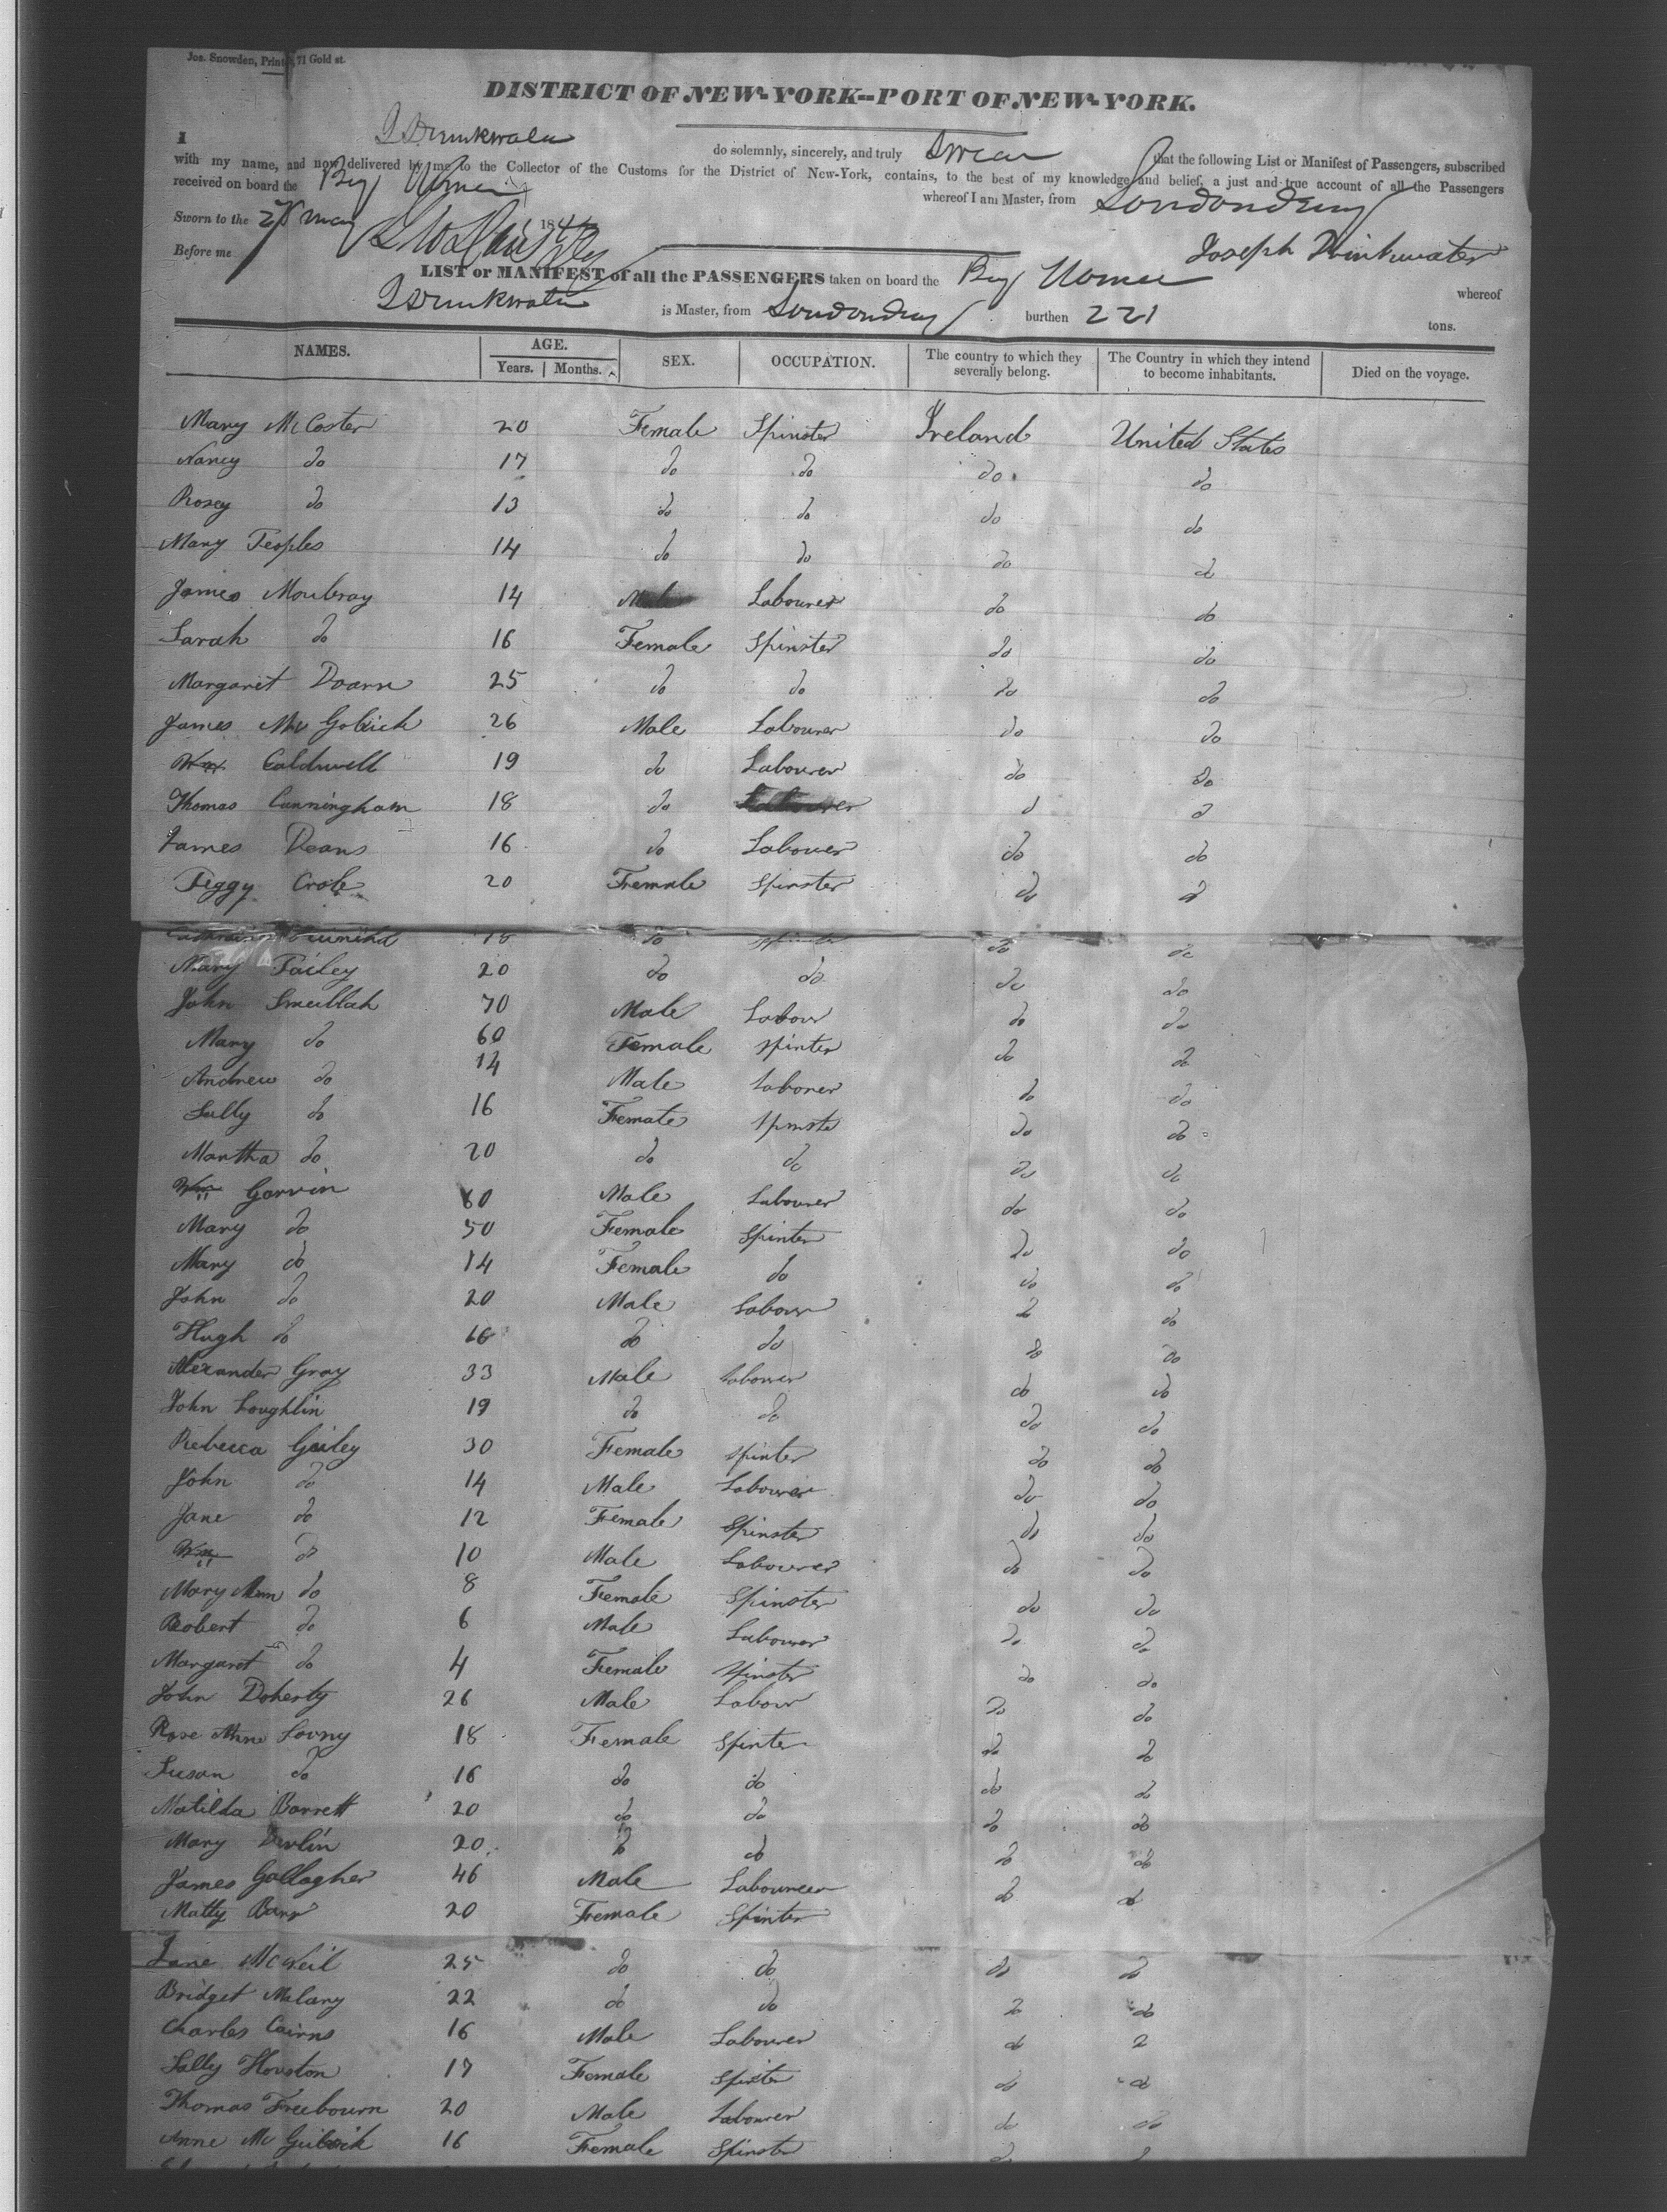 Jos. Snowden, Printer, 71 Gold st.
DISTRICT OF NEW-YORK--PORT OF NEW-YORK.
I J Drinkwater do solemnly, sincerely, and truly Swear that the following List or Manifest of Passengers, subscribed
with my name, and now delivered by me to the Collector of the Customs for the District of New-York, contains, to the best of my knowledge and belief, a just and true account of all the Passengers
received on board the Brig whereof I am Master, from Londonderry
Sworn to the 28 May 184
Before me
Joseph Drinkwater
LIST or MANIFEST of all the PASSENGERS taken on board the Brig whereof
J Drinkwater is Master, from Londonderry burthen 221 tons.
NAMES. AGE. Years. Months. SEX. OCCUPATION. The country to which they severally belong. The Country in which they intend to become inhabitants. Died on the voyage.
Mary McCoster 20 Female Spinster Ireland United States
Nancy do 17 do do do do
Rosey do 13 do do do do
Mary Peoples 14 do do do do
James Moubray 14 Male Labourer do do
Sarah do 16 Female Spinster do do
Margaret Doarn 25 do do do do
James 26 Male Labourer do do
Wm Caldwell 19 do Labourer do do
Thomas Cunningham 18 do Labourer d d
James Deans 16 do Labouer do do
Peggy Crole 20 Female Spinster do do
18 do Spinster do do
Mary Pailey 20 do do do do
John Smullah 70 Male Labour do do
Mary do 60 Female Spinter do do
Andrew do 14 Male Laborer do do
Sally do 16 Female Spinste do do
Martha do 20 do do do do
Wm Garvin 60 Male Labourer do do
Mary do 50 Female Spinter do do
Mary do 14 Female do do do
John do 20 Male Labour do do
Hugh do 16 do do do do
Alexander Gray 33 Male Labourer do do
John Loughlin 19 do do do do
Rebecca Gailey 30 Female Spinter do do
John do 14 Male Labourer do do
Jane do 12 Female Spinster do do
Wm do 10 Male Labourer do do
Mary Ann do 8 Female Spinster do do
Robert do 6 Male Labourer do do
Margaret do 4 Female Spinster do do
John Doherty 26 Male Labour do do
Rose Anne Lovny 18 Female Spinter do do
Susan do 16 do do do do
Matilda Barrett 20 do do do do
Mary Devlin 20 do do do do
James Gallagher 46 Male Labourer do do
Matty Barr 20 Female Spinter
Jane McNeil 25 do do do do
Bridget Melary 22 do do do do
Charles Cairns 16 Male Labourer do do
Sally Houston 17 Female Spinster do do
Thomas Freebourn 20 Male Labourer do do
Anne 16 Female Spinster do do